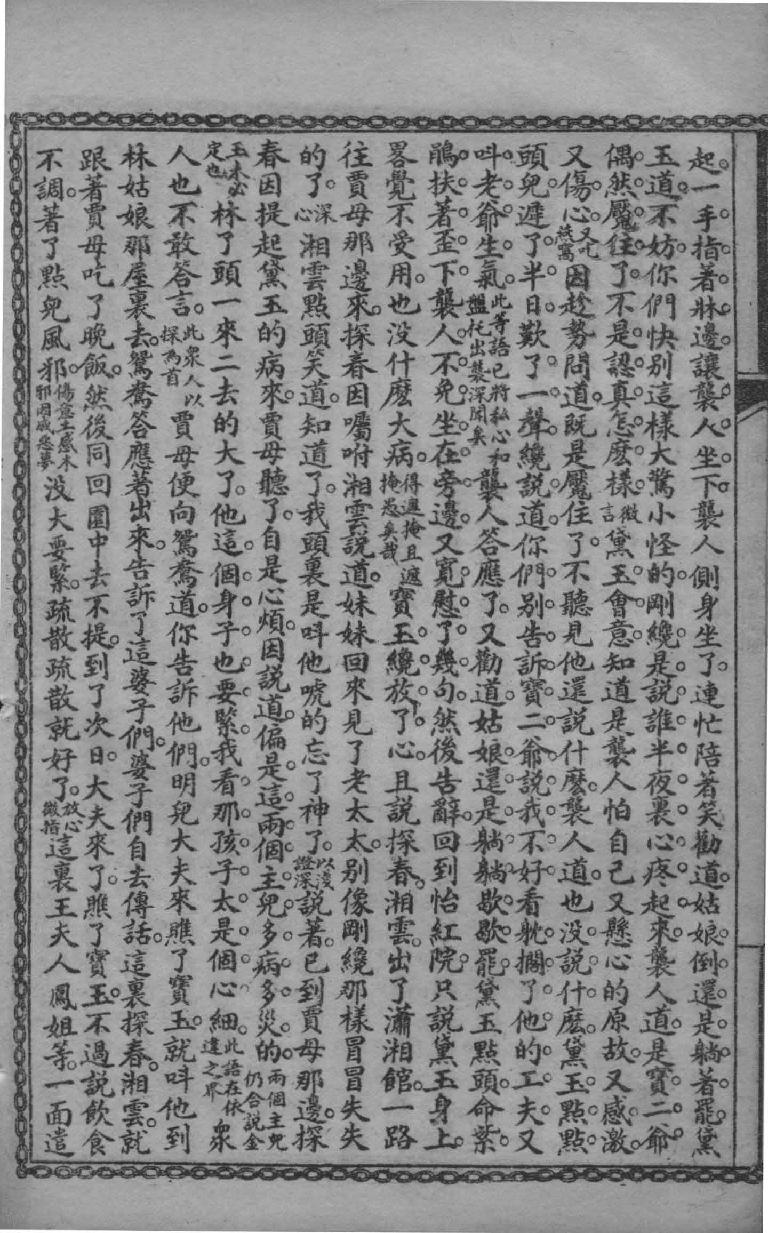 起一手指著牀邊讓襲人坐下襲人側身坐了連忙陪著笑勸道姑娘倒還是躺著罷黛
玉道不妨你們快別這樣大驚小怪的剛纔是說誰半夜裏心疼起來襲人道是寶二爺
偶然魘住了不是認真怎麽樣微言黛玉會意知道是襲人怕自己又懸心的原故又感激
又傷心因趁勢問道既是魘住了不聽見他還說什麽襲人道也没說什麽黛玉點點
頭兒遲了半日歎了一聲纔說道你們别告訴寶二爺說我不好看躭擱了他的工夫又
呌老爺生氣此等語已將私心和盤托出襲深聞矣襲人答應了又勸道姑娘還是躺躺歇歇罷黛玉點頭命紫
鵑扶著歪下襲人不免坐在旁邊又寬慰了幾句然後告辭回到怡紅院只說黛玉身上
畧覺不受用也没什麽大病得遮掩且遮掩愚矣哉寶玉纔放了心且說探春湘雲出了瀟湘館一路
往賈母那邊來探春因囑咐湘雲說道妹妹回來見了老太太别像剛纔那樣冒冒失失
的了深心湘雲點頭笑道知道了我頭裏是呌他唬的忘了神了以淺證深說著已到賈母那邊探
春因提起黛玉的病來賈母聽了自是心煩因說道偏是這兩個主兒多病多災的兩個主兒仍合說金
玉未必定也林丫頭一來二去的大了他這個身子也要緊我看那孩子太是個心細此語在依違之界衆
人也不敢答言此衆人以探為首賈母便向鴛鴦道你告訴他們明兒大夫來瞧了寶玉就呌他到
林姑娘那屋裏去鴛鴦答應著出來告訴了這婆子們婆子們自去傳話這裏探春湘雲就
跟著賈母吃了晚飯然後同回園中去不提到了次日大夫來了瞧了寶玉不過說飲食
不調著了點兒風邪没大要緊疏散疏散就好了放心微指這裏王夫人鳳姐等一面遣